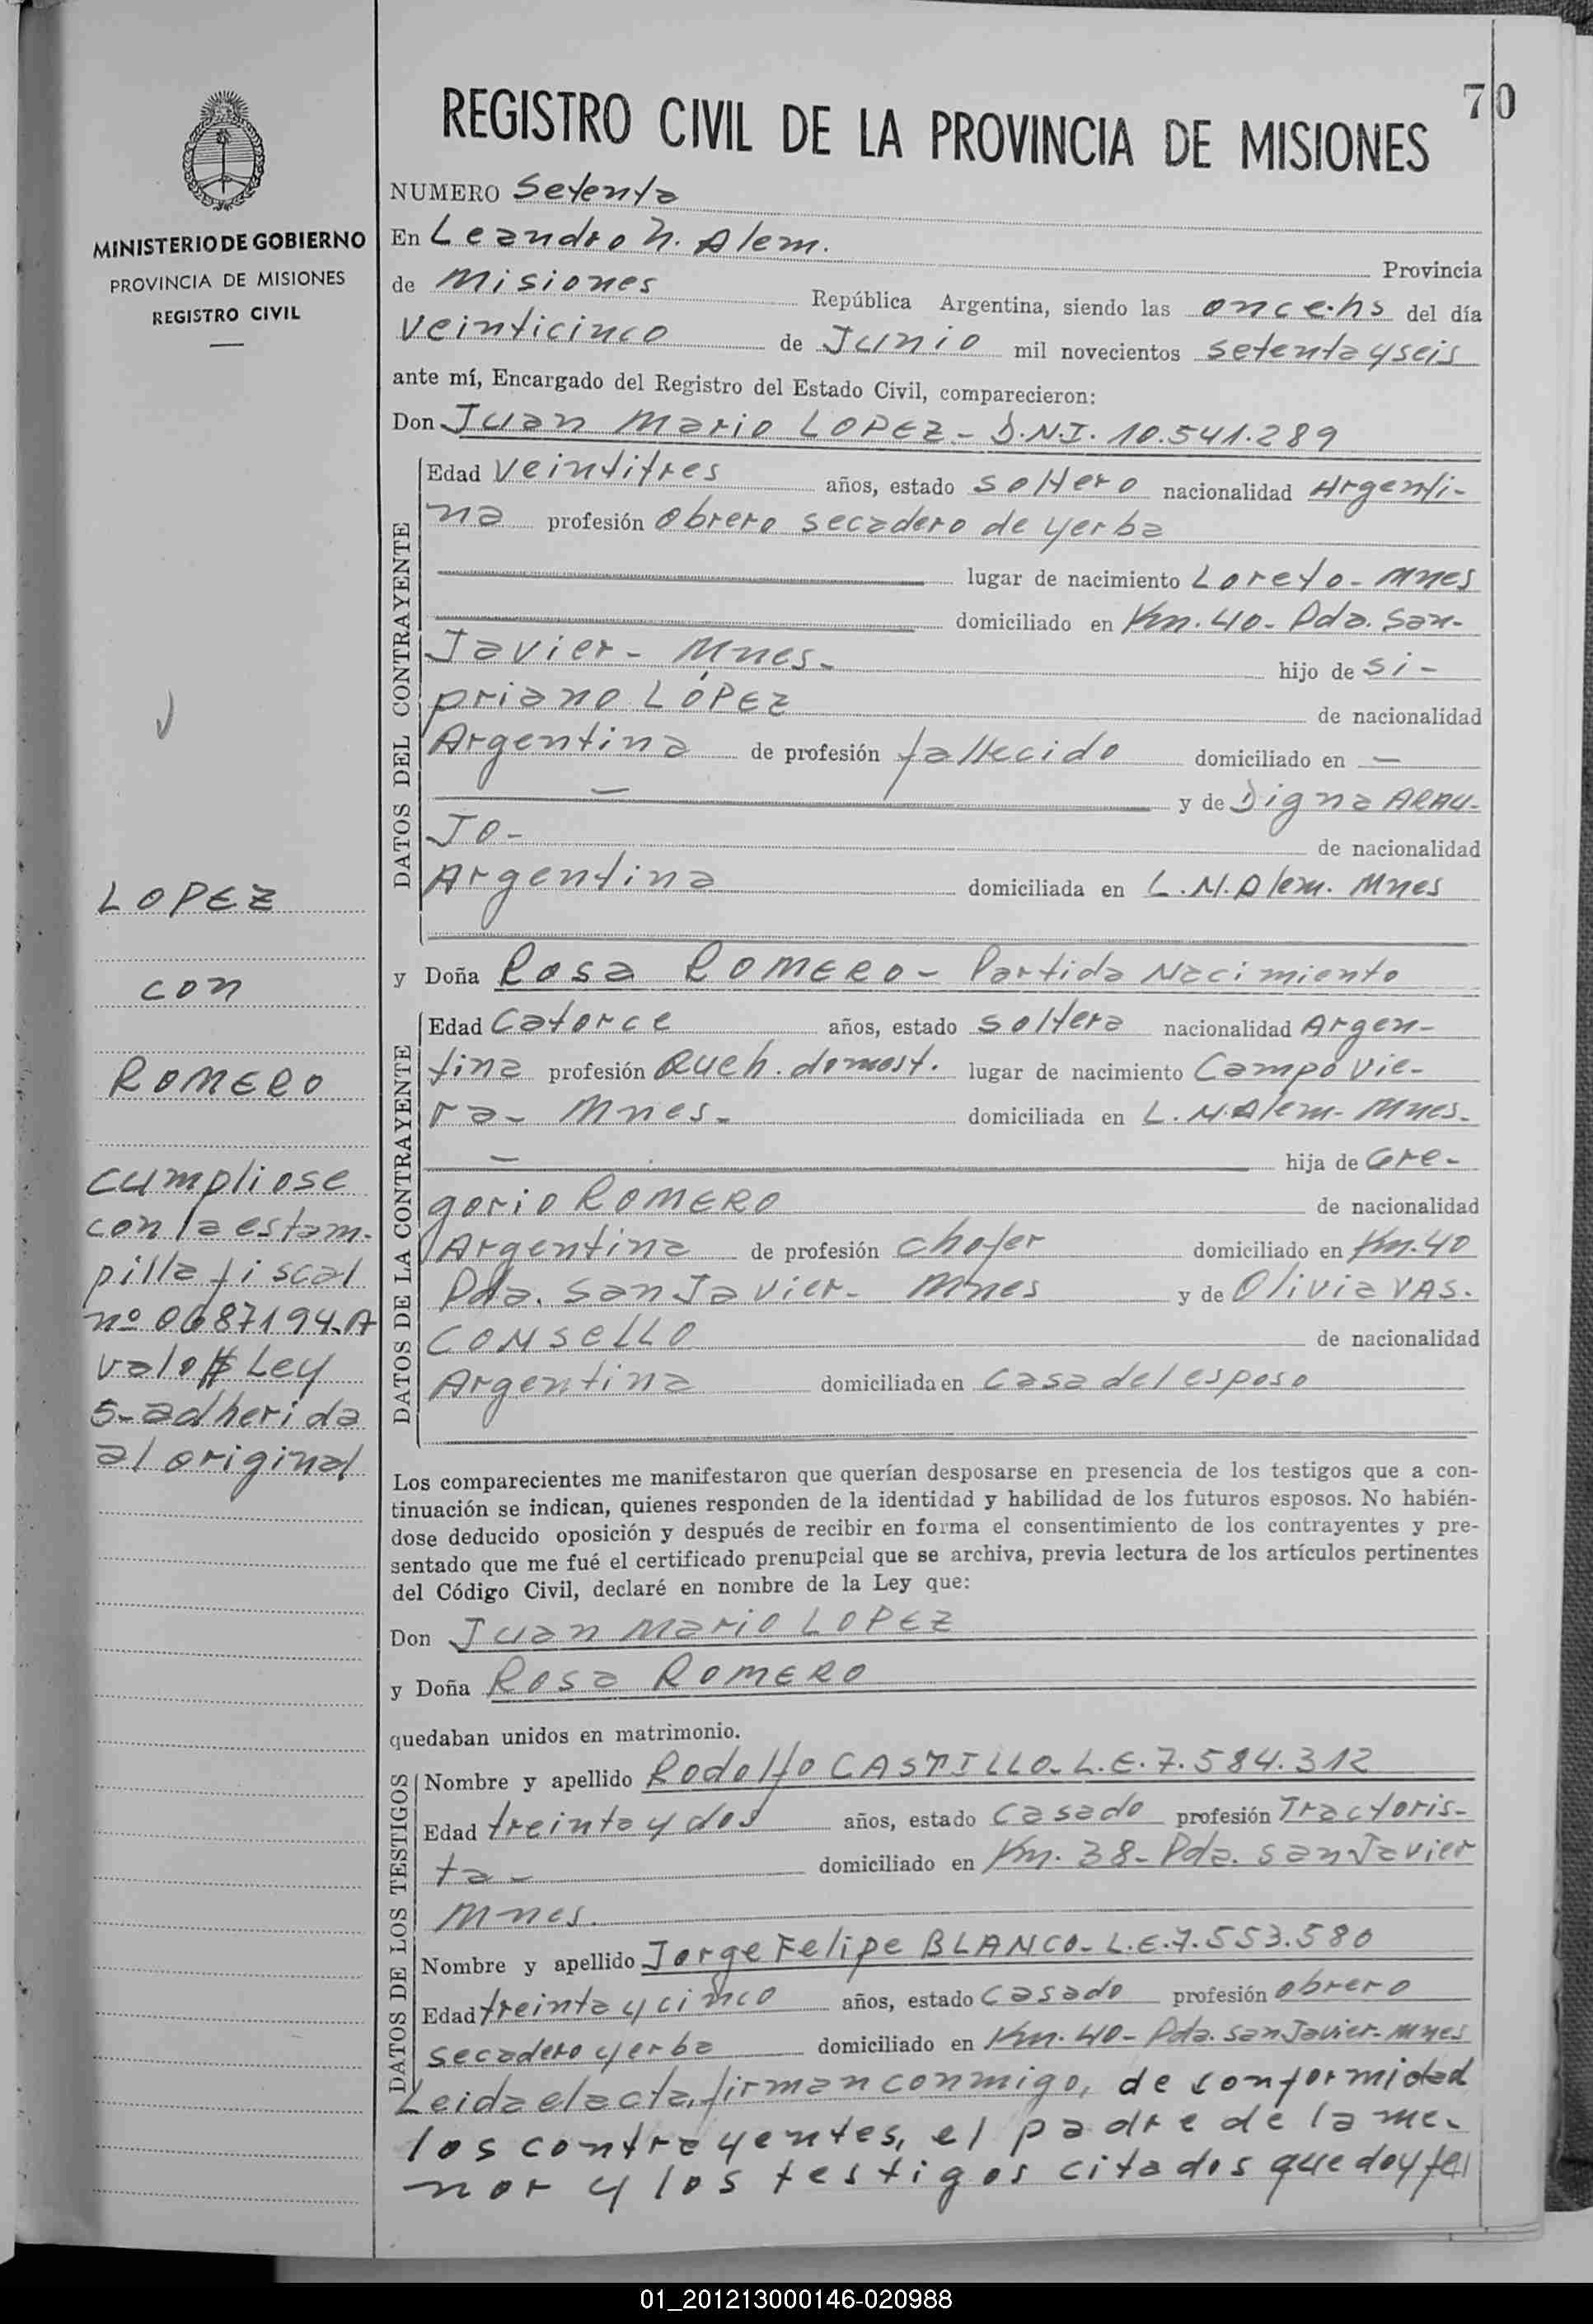 70
REGISTRO CIVIL DE LA PROVINCIA DE MISIONES
MINISTERIO DE GOBIERNO
PROVINCIA DE MISIONES
REGISTRO CIVIL
LOPEZ
con
ROMERO
cumpliose
con la estam-
pilla fiscal
nº 0687194.A
valor $ Ley
5- adherida
al original
NUMERO Setenta
En Leandro N. Alem. Provincia
de Misiones República Argentina, siendo las once.hs del día
veinticinco de Junio mil novecientos setenta y seis
ante mí, Encargado del Registro del Estado Civil, comparecieron:
Don Juan Mario LOPEZ - D.N.I. 10.541.289
DATOS DEL CONTRAYENTE
Edad veintitres años, estado soltero nacionalidad Argenti-
na profesión obrero secadero de yerba
lugar de nacimiento Loreto - Mnes
domiciliado en Km. 40 - Pda. San-
Javier - Mnes - hijo de Si-
priano LÓPEZ de nacionalidad
Argentina de profesión fallecido domiciliado en —
— y de Digna ARAU-
JO - de nacionalidad
Argentina domiciliada en L. N. Alem. Mnes
y Doña Rosa ROMERO - Partida Nacimiento
DATOS DE LA CONTRAYENTE
Edad Catorce años, estado soltera nacionalidad Argen-
tina profesión Queh. domest. lugar de nacimiento Campo Vie-
ra - Mnes - domiciliada en L. N. Alem - Mnes -
— hija de Gre-
gorio ROMERO de nacionalidad
Argentina de profesión chofer domiciliado en Km. 40
Pda. San Javier - Mnes y de Olivia VAS-
CONSELLO de nacionalidad
Argentina domiciliada en casa del esposo
Los comparecientes me manifestaron que querían desposarse en presencia de los testigos que a con-
tinuación se indican, quienes responden de la identidad y habilidad de los futuros esposos. No habién-
dose deducido oposición y después de recibir en forma el consentimiento de los contrayentes y pre-
sentado que me fué el certificado prenupcial que se archiva, previa lectura de los artículos pertinentes
del Código Civil, declaré en nombre de la Ley que:
Don Juan Mario LOPEZ
y Doña Rosa ROMERO
quedaban unidos en matrimonio.
DATOS DE LOS TESTIGOS
Nombre y apellido Rodolfo CASTILLO - L.E. 7.584.312
Edad treinta y dos años, estado casado profesión Tractoris-
ta - domiciliado en Km. 38 - Pda. San Javier
Mnes.
Nombre y apellido Jorge Felipe BLANCO - L.E. 7.553.580
Edad treinta y cinco años, estado casado profesión obrero
secadero yerba domiciliado en Km. 40 - Pda. San Javier - Mnes
Leida el acta, firman conmigo, de conformidad
los contrayentes, el padre de la me-
nor y los testigos citados que doy fe
01_201213000146-020988